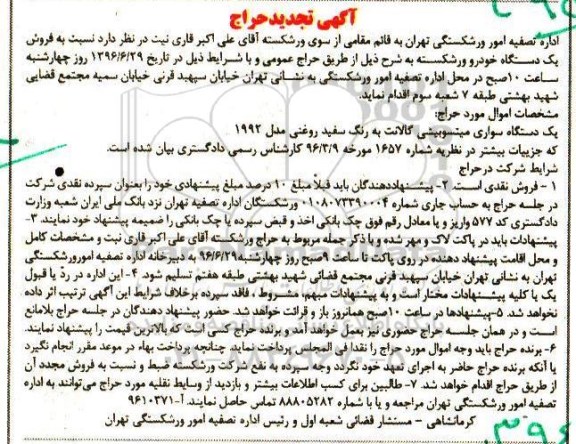 آگهی تجدیدحراج
اداره تصفیه امور ورشکستگی تهران به قائم مقامی از سوی ورشکسته آقای علی اکبر قاری نیت در نظر دارد نسبت به فروش
یک دستگاه خودرو ورشکسته به شرح ذیل از طریق حراج عمومی و با شرایط ذیل در تاریخ ۱۳۹۶/۶/۲۹ روز چهارشنبه
ساعت ۱۰صبح در محل اداره تصفیه امور ورشکستگی به نشانی تهران خیابان سپهبد قرنی خیابان سمیه مجتمع قضایی
شهید بهشتی طبقه ۷ شعبه سوم اقدام نماید.
مشخصات اموال مورد حراج:
یک دستگاه سواری میتسوبیشی گالانت به رنگ سفید روغنی مدل ۱۹۹۲
که جزییات بیشتر در نظریه شماره ۱۶۵۷ مورخه ۹۶/۳/۹ کارشناس رسمی دادگستری بیان شده است.
شرایط شرکت در حراج
۱ - فروش نقدی است. ۲- پیشنهاددهندگان باید قبلاً مبلغ ۱۰ درصد مبلغ پیشنهادی خود را بعنوان سپرده نقدی شرکت
در جلسه حراج به حساب جاری شماره ۰۱۰۸۰۷۳۳۹۰۰۰۴ ورشکستگان اداره تصفیه تهران نزد بانک ملی ایران شعبه وزارت
دادگستری کد ۵۷۷ واریز و یا معادل رقم فوق چک بانکی اخذ و قبض سپرده یا چک بانکی را ضمیمه پیشنهاد خود نمایند. ۳-
پیشنهادات باید در پاکت لاک و مهر شده و با ذکر جمله مربوط به حراج ورشکسته آقای علی اکبر قاری نیت و مشخصات کامل
و محل اقامت پیشنهاد دهنده در روی پاکت تا ساعت ۹صبح روز چهارشنبه ۹۶/۶/۲۹ به دبیرخانه اداره تصفیه امورورشکستگی
تهران به نشانی تهران خیابان سپهبد قرنی مجتمع قضائی شهید بهشتی طبقه هفتم تسلیم شود. ۴- این اداره در ردّ یا قبول
یک یا کلیه پیشنهادات مختار است و به پیشنهادات مبهم، مشروط، فاقد سپرده برخلاف شرایط این آگهی ترتیب اثر داده
نخواهد شد. ۵-پیشنهادها در ساعت ۱۰صبح همانروز باز و قرائت خواهد شد. حضور پیشنهاد دهندگان در جلسه حراج بلامانع
است و در همان جلسه حراج حضوری نیز بعمل خواهد آمد و برنده حراج کسی است که بالاترین قیمت را پیشنهاد نمایند.
۶- برنده حراج باید وجه اموال مورد حراج را نقداً فی المجلس پرداخت نماید چنانچه پرداخت بهاء در موعد مقرر انجام نگیرد
یا آنکه برنده حراج حاضر به اجرای تعهد خود نگردد وجه سپرده به نفع شرکت ورشکسته ضبط و نسبت به فروش مجدد آن
از طریق حراج اقدام خواهد شد. ۷- طالبین برای کسب اطلاعات بیشتر و بازدید از وسایط نقلیه مورد حراج می‌توانند به اداره
تصفیه امور ورشکستگی تهران مراجعه و یا با شماره ۸۸۸۰۵۲۸۲ تماس حاصل نمایند. آ-۹۶۱۰۳۷۱
کرمانشاهی - مستشار قضائی شعبه اول و رئیس اداره تصفیه امور ورشکستگی تهران